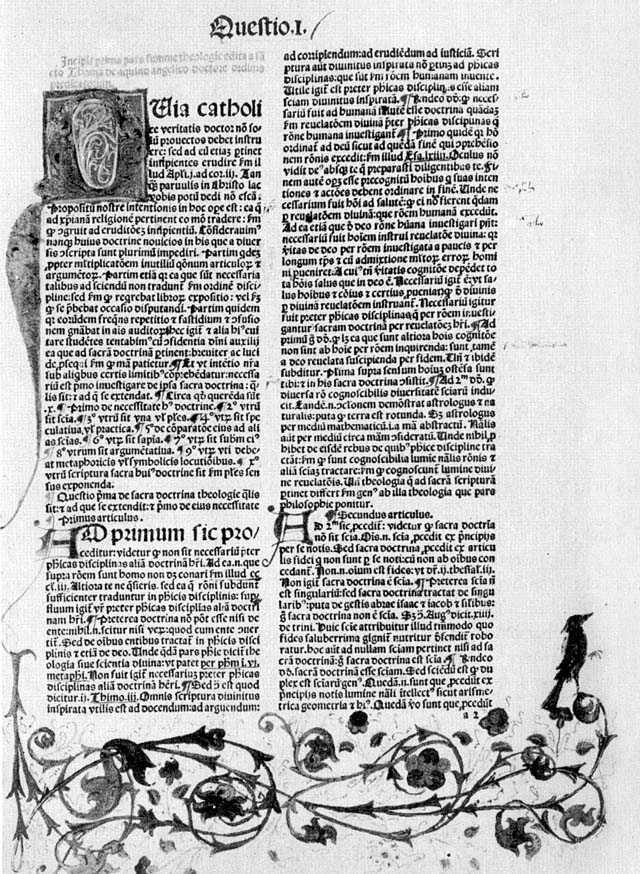 Questio.I.
Incipit prima pars summe theologie edita a sā
cto Thoma de aquino angelico doctore ordinis
predicatorum.
Quia catholi
ce veritatis doctor nō so
lū prouectos debet instru
ere: sed ad eū etiaʒ ꝑtinet
insipientes erudire ẜm il
lud Apłi.j.ad cor.iij. Tan
ꝙ paruulis in christo lac
vobis potū dedi nō escā:
propositū nostre intentionis in hoc oꝑe est: ea q̄
ad xpianā religionē pertinent eo mō tradere: ẜm
ꝙ ↄgruit ad eruditōeʒ insipientiū. Cōsiderauim⁹
nanqʒ huius doctrine nouicios in his que a diuer
sis ↄscripta sunt plurimū impediri. Partim q̇deʒ
ꝓpter mĺtiplicatōem inutiliū q̄onum articuloꝝ ⁊
argumētoꝝ. Partim etiā qꝛ ea que sūt necessaria
talibus ad sciendū non tradunt̃ ẜm ordinē disci-
pline: sed ẜm ꝙ regrebat libroꝝ expositio: vel ẜm
ꝙ se p̄bebat occasio disputandi. Partim quidem
qꝛ eorūdem freq̄ns repetitio ⁊ fastidiū ⁊ ↄfusio
nem gn̄abat in aīs auditoꝝ. hec igit̃ ⁊ alia hi⁹cui
tare studētes tentabim⁹ cū ↄfidentia diuini auxilij
ea que ad sacrā doctrinā ꝑtinent: breuiter ac luci
de ꝓsequi ẜm ꝙ mā patietur. Et vt intētio nr̄a
sub aliquibus certis limitib⁹ cōp̄hēdatur: necessa-
riū est pmo inuestigare de ipsa sacra doctrina: q̄
lis sit: ⁊ ad q̄ se extendat. Circa q̄d querēda sūt
.x. Primo de necessitate hui⁹ doctrine. 2° vtrū
sit scia. 3° vtꝝ sit vna vł p̄les. 4° vtꝝ sit spe
culatiua vł practica. 5° de cōparatōe eius ad ali
as sciās. 6° vtꝝ sit sapīa. 7° vtꝝ sit subm ei⁹
8° vtrum sit argumētatiua. 9° vtꝝ vti debe-
at metaphoricis vł symbolicis locutiōibus. x°
vtrū scriptura sacra hui⁹ doctrine sit ẜm p̄les sen
sus exponenda.
Questio pma de sacra doctrina theologie q̄lis
sit: ⁊ ad que se extendit: ⁊ pmo de eius necessitate
Primus articulus.
AD primum sic pro/
ceditur: videtur ꝙ non sit necessariū p̄ter
phicas disciplinas aliā doctrinā hr̄i. Ad ea.n. que
supra rōem sunt homo non dʒ conari ẜm illud ec
ci.iij. Altiora te ne q̄sieris. sed ea q̄ rōni subdunt̃
sufficienter traduntur in phicis disciplinis: sup
fluum igit̃ vr̄ preter phicas disciplias aliā doctri
nam hr̄i. Preterea doctrina nō pōt esse nisi de
ente: nihil.n. scitur nisi veꝝ: quod cum ente ↄuer
tit̃. Sed de oībus entibus tractat̃ in phicis disci
plinis ⁊ etiā de deo. Unde q̄dā pars phie dicit̃ the
ologia siue scientia diuina: vt patet per phm i.vi.
metaphi. Non fuit igit̃ necessariuʒ preter phicas
disciplinas aliā doctrinā hr̄i. Sed ↄ est quod
dicitur.ij. Thimo.iij. Omnis scriptura diuinitus
inspirata vtilis est ad docendum: ad arguendum:
ad corripiendum: ad erudiēdum ad iusticiā. Scri
ptura aūt diuinitus inspirata nō ꝑtinʒ ad phicas
disciplinas: que sūt ẜm rōem humanam inuente.
Utile igit̃ est preter phicas disciplinas esse aliam
sciam diuinitus inspiratā. Rn̄deo dō: ꝙ neces-
sariū fuit ad humanā salutē esse doctrinā quādaʒ
ẜm reuelatōem diuinā p̄ter phicas disciplinas q̄
rōne humana inuestigant̃. Primo quidē qꝛ hō
ordinat̃ ad deū sicut ad quēdā finē qui ↄp̄hēsio
nem rōnis excedit: ẜm illud Esa.lxiiij. Oculus nō
vidit de⁹ absqʒ te q̄ preparasti diligentibus te. Fi
nem autē oꝑʒ esse precognitū hoībus q̄ suas inten
tiones ⁊ actōes debent ordinare in finē. Unde ne
cessarium fuit hoī ad salutē: ꝙ ei nō fierent q̄dam
ꝑ reuelatōem diuinā: que rōem humanā excedūt.
Ad ea etiā que ð deo rōne hūana inuestigari pn̄t:
necessariū fuit hoiem instrui reuelatōe diuina: qꝛ
v̄itas de deo per rōem inuestigata a paucis ⁊ per
longum tp̄s ⁊ cū admixtione mĺtoꝝ erroꝝ homi
ni pueniret. A cui⁹ tn̄ v̄itatis cognitōe depēdet to
ta hoīs salus que in deo ē. Necessariū igit̃ ē: vt sa-
lus hoībus ⁊ cōius ⁊ certius pueniat: ꝙ ð diuinis
ꝑ diuinā reuelatōem instruant̃. Necessariū igitur
fuit preter phicas disciplinas q̄ per rōem iuesti-
gantur: sacram doctrinam per reuelatōeʒ hr̄i. Ad
primū g̊ dō. ꝙ lʒ ea que sunt altiora hoīs cognitōe
non sint ab hoie per rōem inquirenda: sunt tamē
a deo reuelata suscipienda per fidem. Un̄ ⁊ ibidē
subditur. Plurima supra sensum hoiuʒ ostēsa sunt
tibi: ⁊ in his sacra doctrina ↄsistit. Ad 2m dō. ꝙ
diuersa rō cognoscibilis diuersitatē sciarū induc
cit. Eandē.n. ↄclonem demonstrat astrologus ⁊ na
turalis: puta ꝙ terra est rotunda. Sʒ astrologus
per mediū mathematicū.i.a mā abstractū. Nālis
aūt per medium circa mām ↄsideratū. Unde nihil p̄
hibet de eisdē rebus de quib⁹ phice discipline tra
ctāt: ẜm ꝙ sunt cognoscibilia lumine nālis rōnis ⁊
aliā sciaʒ tractare: ẜm ꝙ cognoscunt̃ lumine diui-
ne reuelatōis. Un̄ theologia q̄ ad sacrā scripturā
ꝑtinet differt ẜm gen⁹ ab illa theologia que pars
philosophie ponitur.
Secundus articulus.
AD 2m sic ꝓcedit̃: videtur ꝙ sacra doctrīa
nō sit scīa. Ois.n. scīa ꝓcedit ex pn̄cipijs
per se notis. Sed sacra doctrina ꝓcedit ex articu
lis fidei q̄ non sunt ꝑ se noti: cū non ab oībus con
cedant̃. Non.n. oīum est fides: vt dr̄.ij. thessal.iij.
Non igit̃ sacra doctrina ē scīa. Preterea scia nō
est singulariū: sed sacra doctrina tractat de singu
larib⁹: puta de gestis abrae isaac ⁊ iacob ⁊ silibus:
g̊ sacra doctrina non ē scia. Sʒ ↄ Aug⁹ dicit.xiiij.
de trini. Huic scie attribuitur illud tm̄modo quo
fides saluberrima gignit̃ nutrit̃ defendit̃ robo
ratur. hoc aūt ad nullam sciam pertinet nisi ad sa
crā doctrinā: g̊ sacra doctrina est scīa. Rn̄deo
dō. sacrā doctrinā esse sciam. Sed sciēdū est ꝙ du
plex est sciarū gen⁹. Quedā.n. sunt que ꝓcedūt ex
pn̄cipijs notis lumine nālī ītellect⁹ sicut arisme-
trica geometria ⁊ hi⁹. Quedā v̊o sunt que ꝓcedūt
a 2